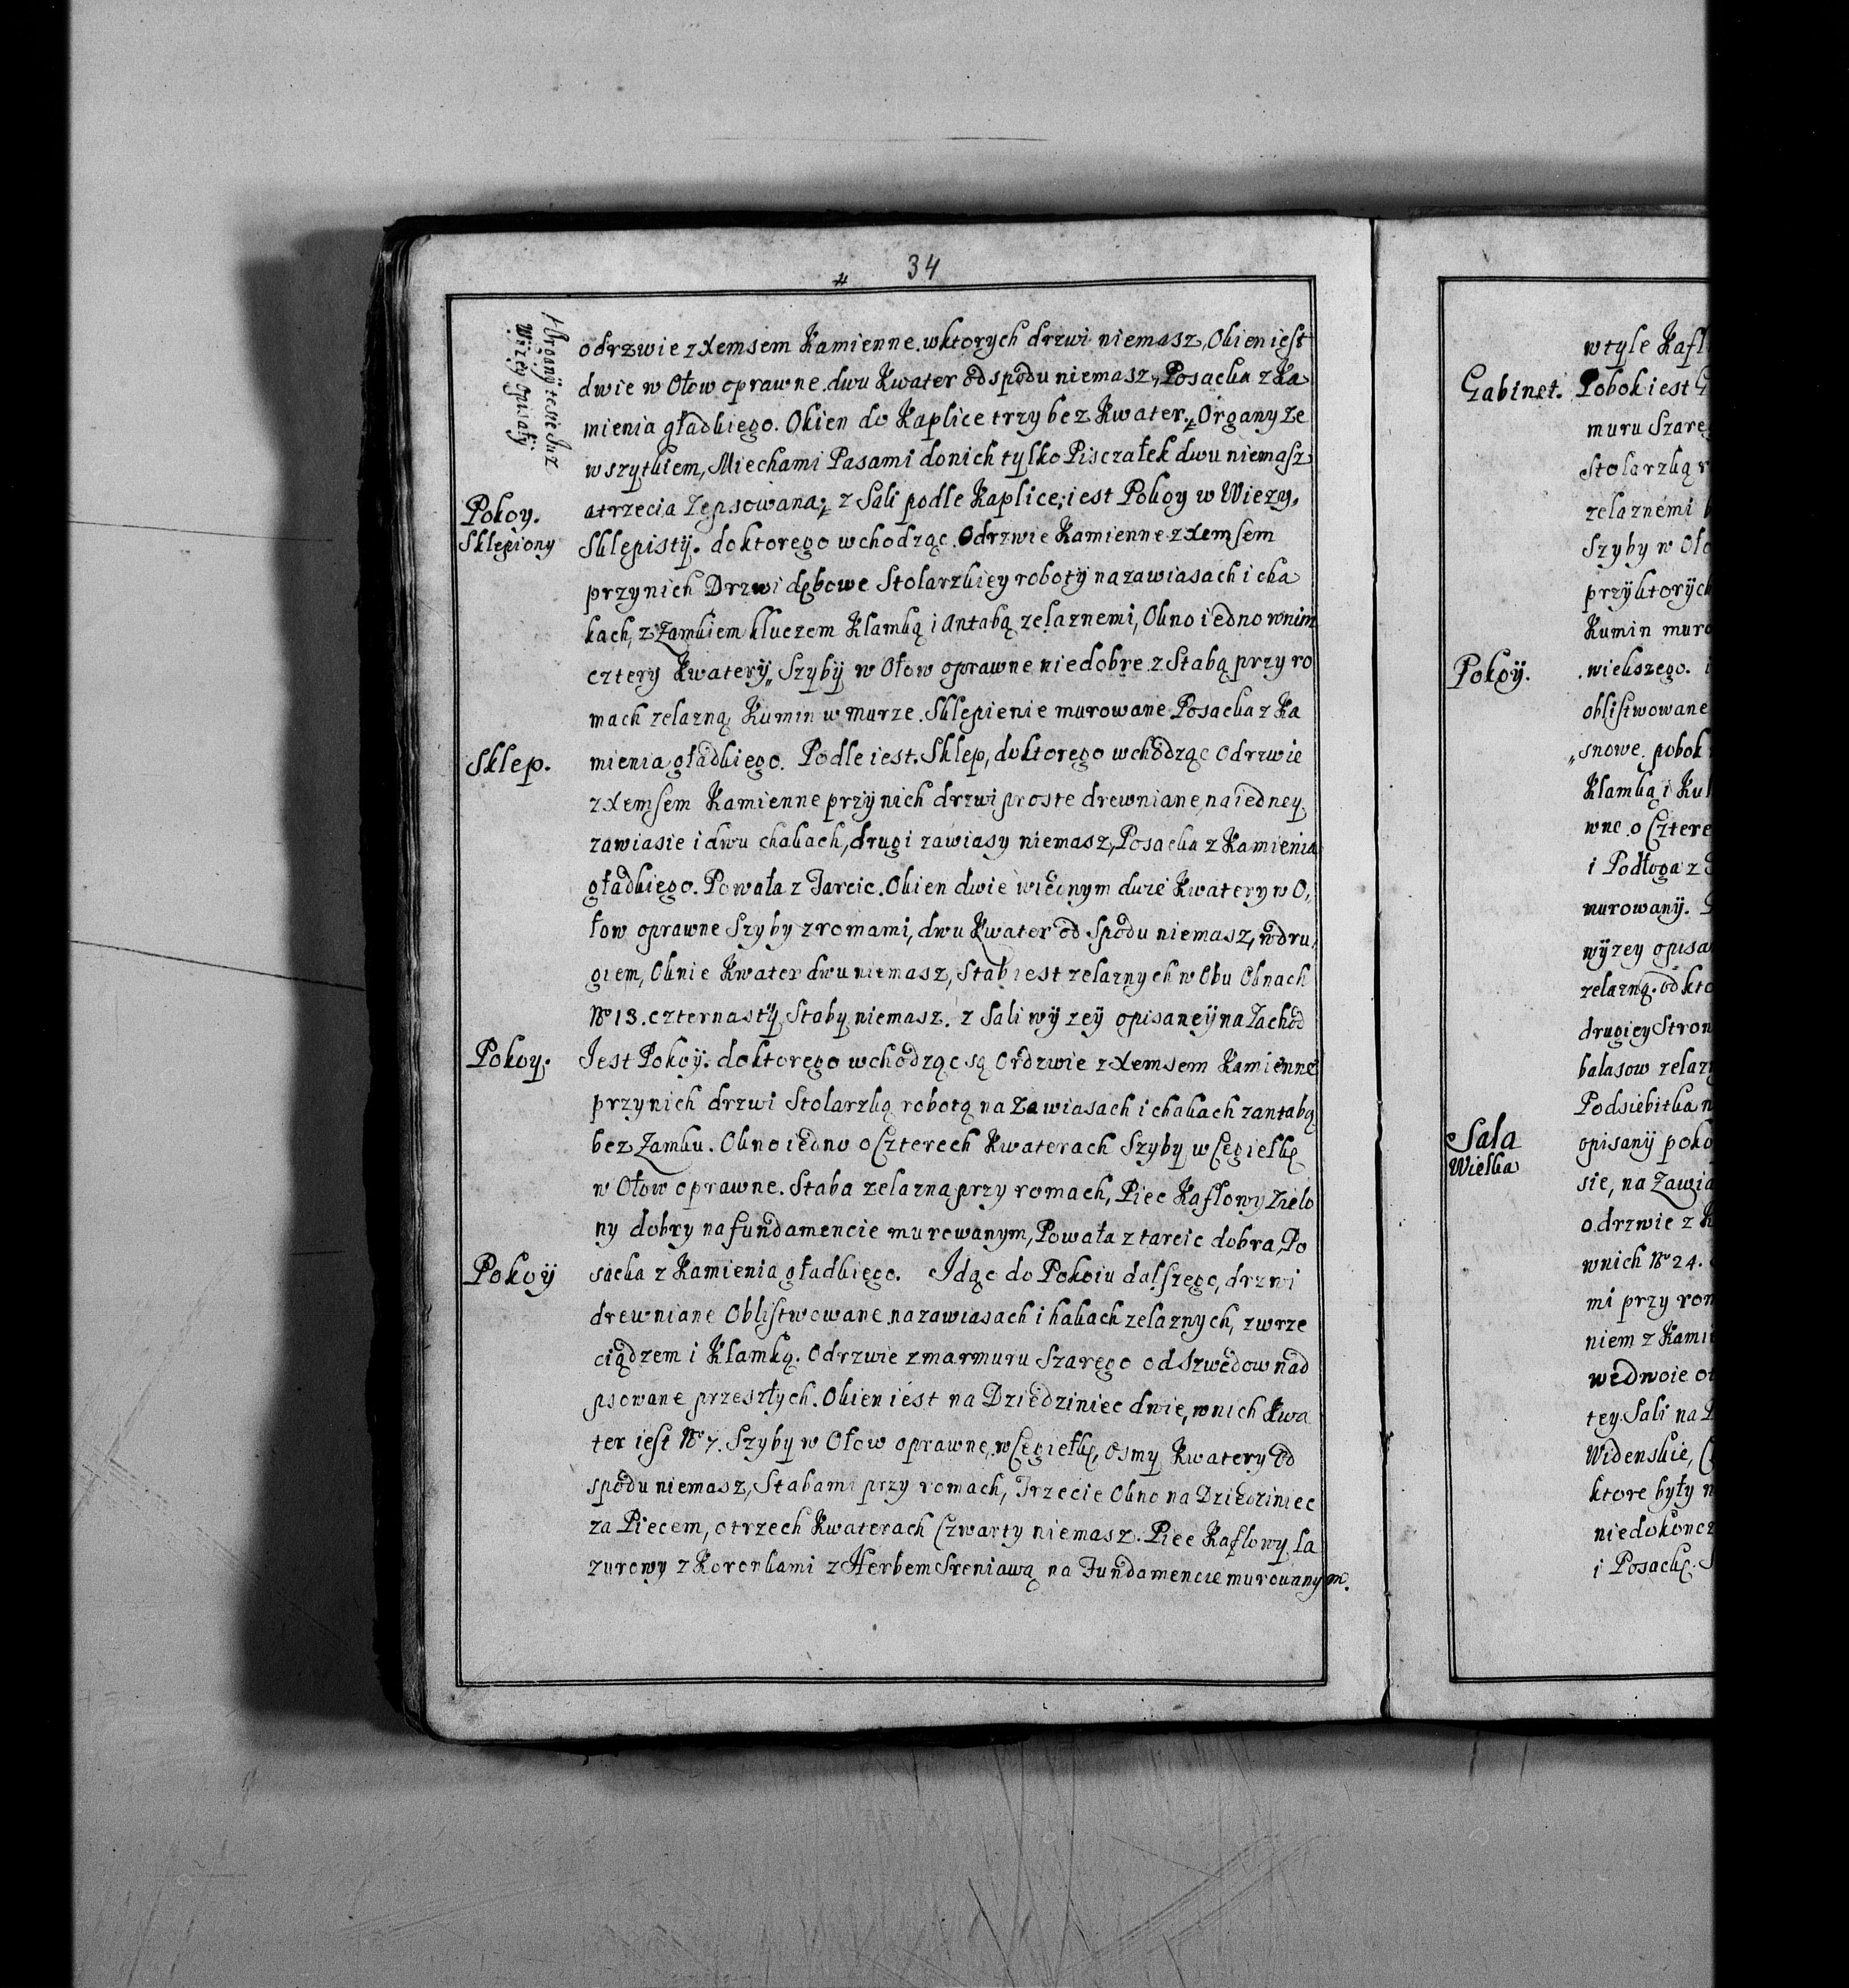 34
+ Organÿ tesie Iuz
wÿzeÿ opisałÿ
odrzwie z Xemsem Kamienne. wktorych drzwi niemasz, Okien iest
dwie w Ołow oprawne. dwu Kwater od spodu niemasz, Posacka z Ka
mienia gładkiego. Okien do Kaplice trzy bez Kwater. Organy ze
wszytkiem, Miechami Pasami donich tylko Pisczałek dwu niemasz
atrzecia Zepsowana, z Sali podle Kaplice, iest Pokoy w Wiezy,
Pokoy.
Sklepiony
Sklepistÿ. doktorego wchodząc. Odrzwie Kamienne z Xemsem
przy nich Drzwi dębowe Stolarzkiey roboty na zawiasach i cha
kach, z Zamkiem kluczem Klamką i Antabą zelaznemi, Okno iedno wnim
cztery Kwaterÿ, Szybÿ w Ołow oprawne niedobre z Stabą przy ro
mach zelazną Kumin w murze. Sklepienie murowane Posacka z Ka
Sklep.
mienia gładkiego. Podle iest. Sklep, doktorego wchodząc odrzwie
z Xemsem Kamienne przÿ nich drzwi proste drewniane, na iedney
zawiasie i dwu chakach, drugi zawiasy niemasz, Posacka z Kamienia
gładkiego. Powała z Tarcic. Okien dwie wiednym dwie Kwatery w O,
łow oprawne Szyby z romami, dwu Kwater od Spodu niemasz, wdru,
giem, Oknie Kwater dwu niemasz, Stab iest zelaznych w Obu Oknach
No 13. czternastÿ Staby niemasz. z Sali wÿzeÿ opisaneÿ na Zachod
Pokoy.
Iest Pokoÿ. doktorego wchodząc są Ordzwie z Xemsem Kamienne
przy nich drzwi Stolarzką robotą na Zawiasach i chakach zantabą
bez Zamku. Okno iedno o Czterech Kwaterach Szyby w Cegiełkę
w Ołow oprawne. Staba zelazna przy romach, Piec Kaflowy Zielo
ny dobry na fundamencie murowanym, Powała z tarcic dobra, Po
Pokoÿ
sacka z Kamienia gładkiego. Idąc do Pokoiu dalszego, drzwi
drewniane Oblistwowane na zawiasach i hakach zelaznych, zwrze
ciądzem i Klamką. Odrzwie z marmuru Szarego od Szwedow nad
psowane przeszłych. Okien iest na Dziedziniec dwie, wnich Kwa
ter iest No 7. Szyby w Ołow oprawne, w Cegiełkę, osmy Kwatery od
spodu niemasz, Stabami przy romach, Trzecie Okno na Dziedziniec
za Piecem, o trzech Kwaterach Czwarty niemasz. Piec Kaflowy la
zurowy z Koronkami z Herbem Sreniawą na Fundamencie murowanym.
w tyle Kafl
Gabinet. Pobok iest G
muru Szareg
Stolarzką r
zelaznemi
Szyby w Oło
przÿ ktorÿch
Kumin muro
Pokoÿ.
wiekszego.
oblisiwowane
snowe. pobok
Klamką i Kul
wne. o Cztere
i Podłoga z
murowanÿ.
wÿzey opisa
zelazną. od kto
drugiey Stron
balasow zelaz
Podsiebitka n
Sala
Wielka
opisanÿ poko
sie, na Zawia
odrzwie z K
wnich No 24.
mi przy rom
niem z Kami
wedwoie ot
tey Sali na
Widenskie,
ktore były n
niedokoncz
i Posackę.